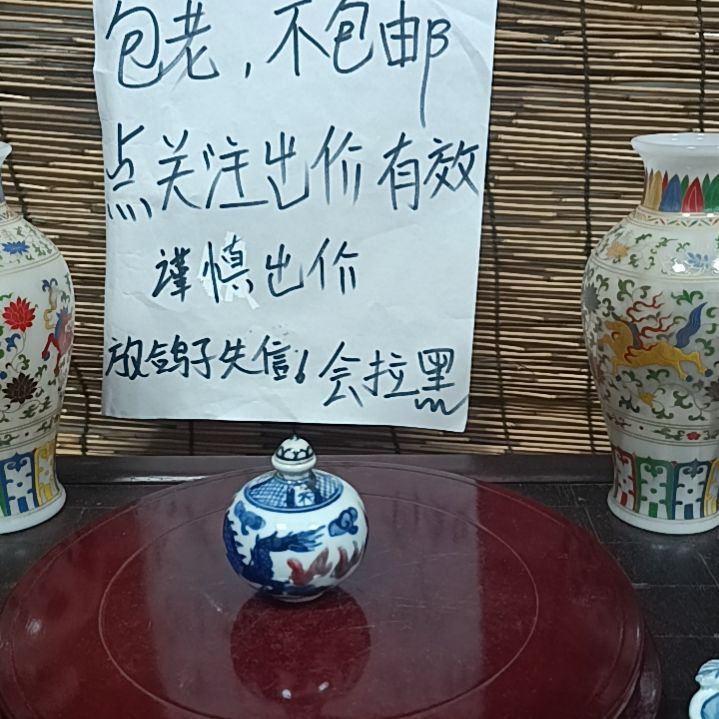 包老，不包邮
点关注出价有效
谨慎出价
放鸽子失信！会拉黑